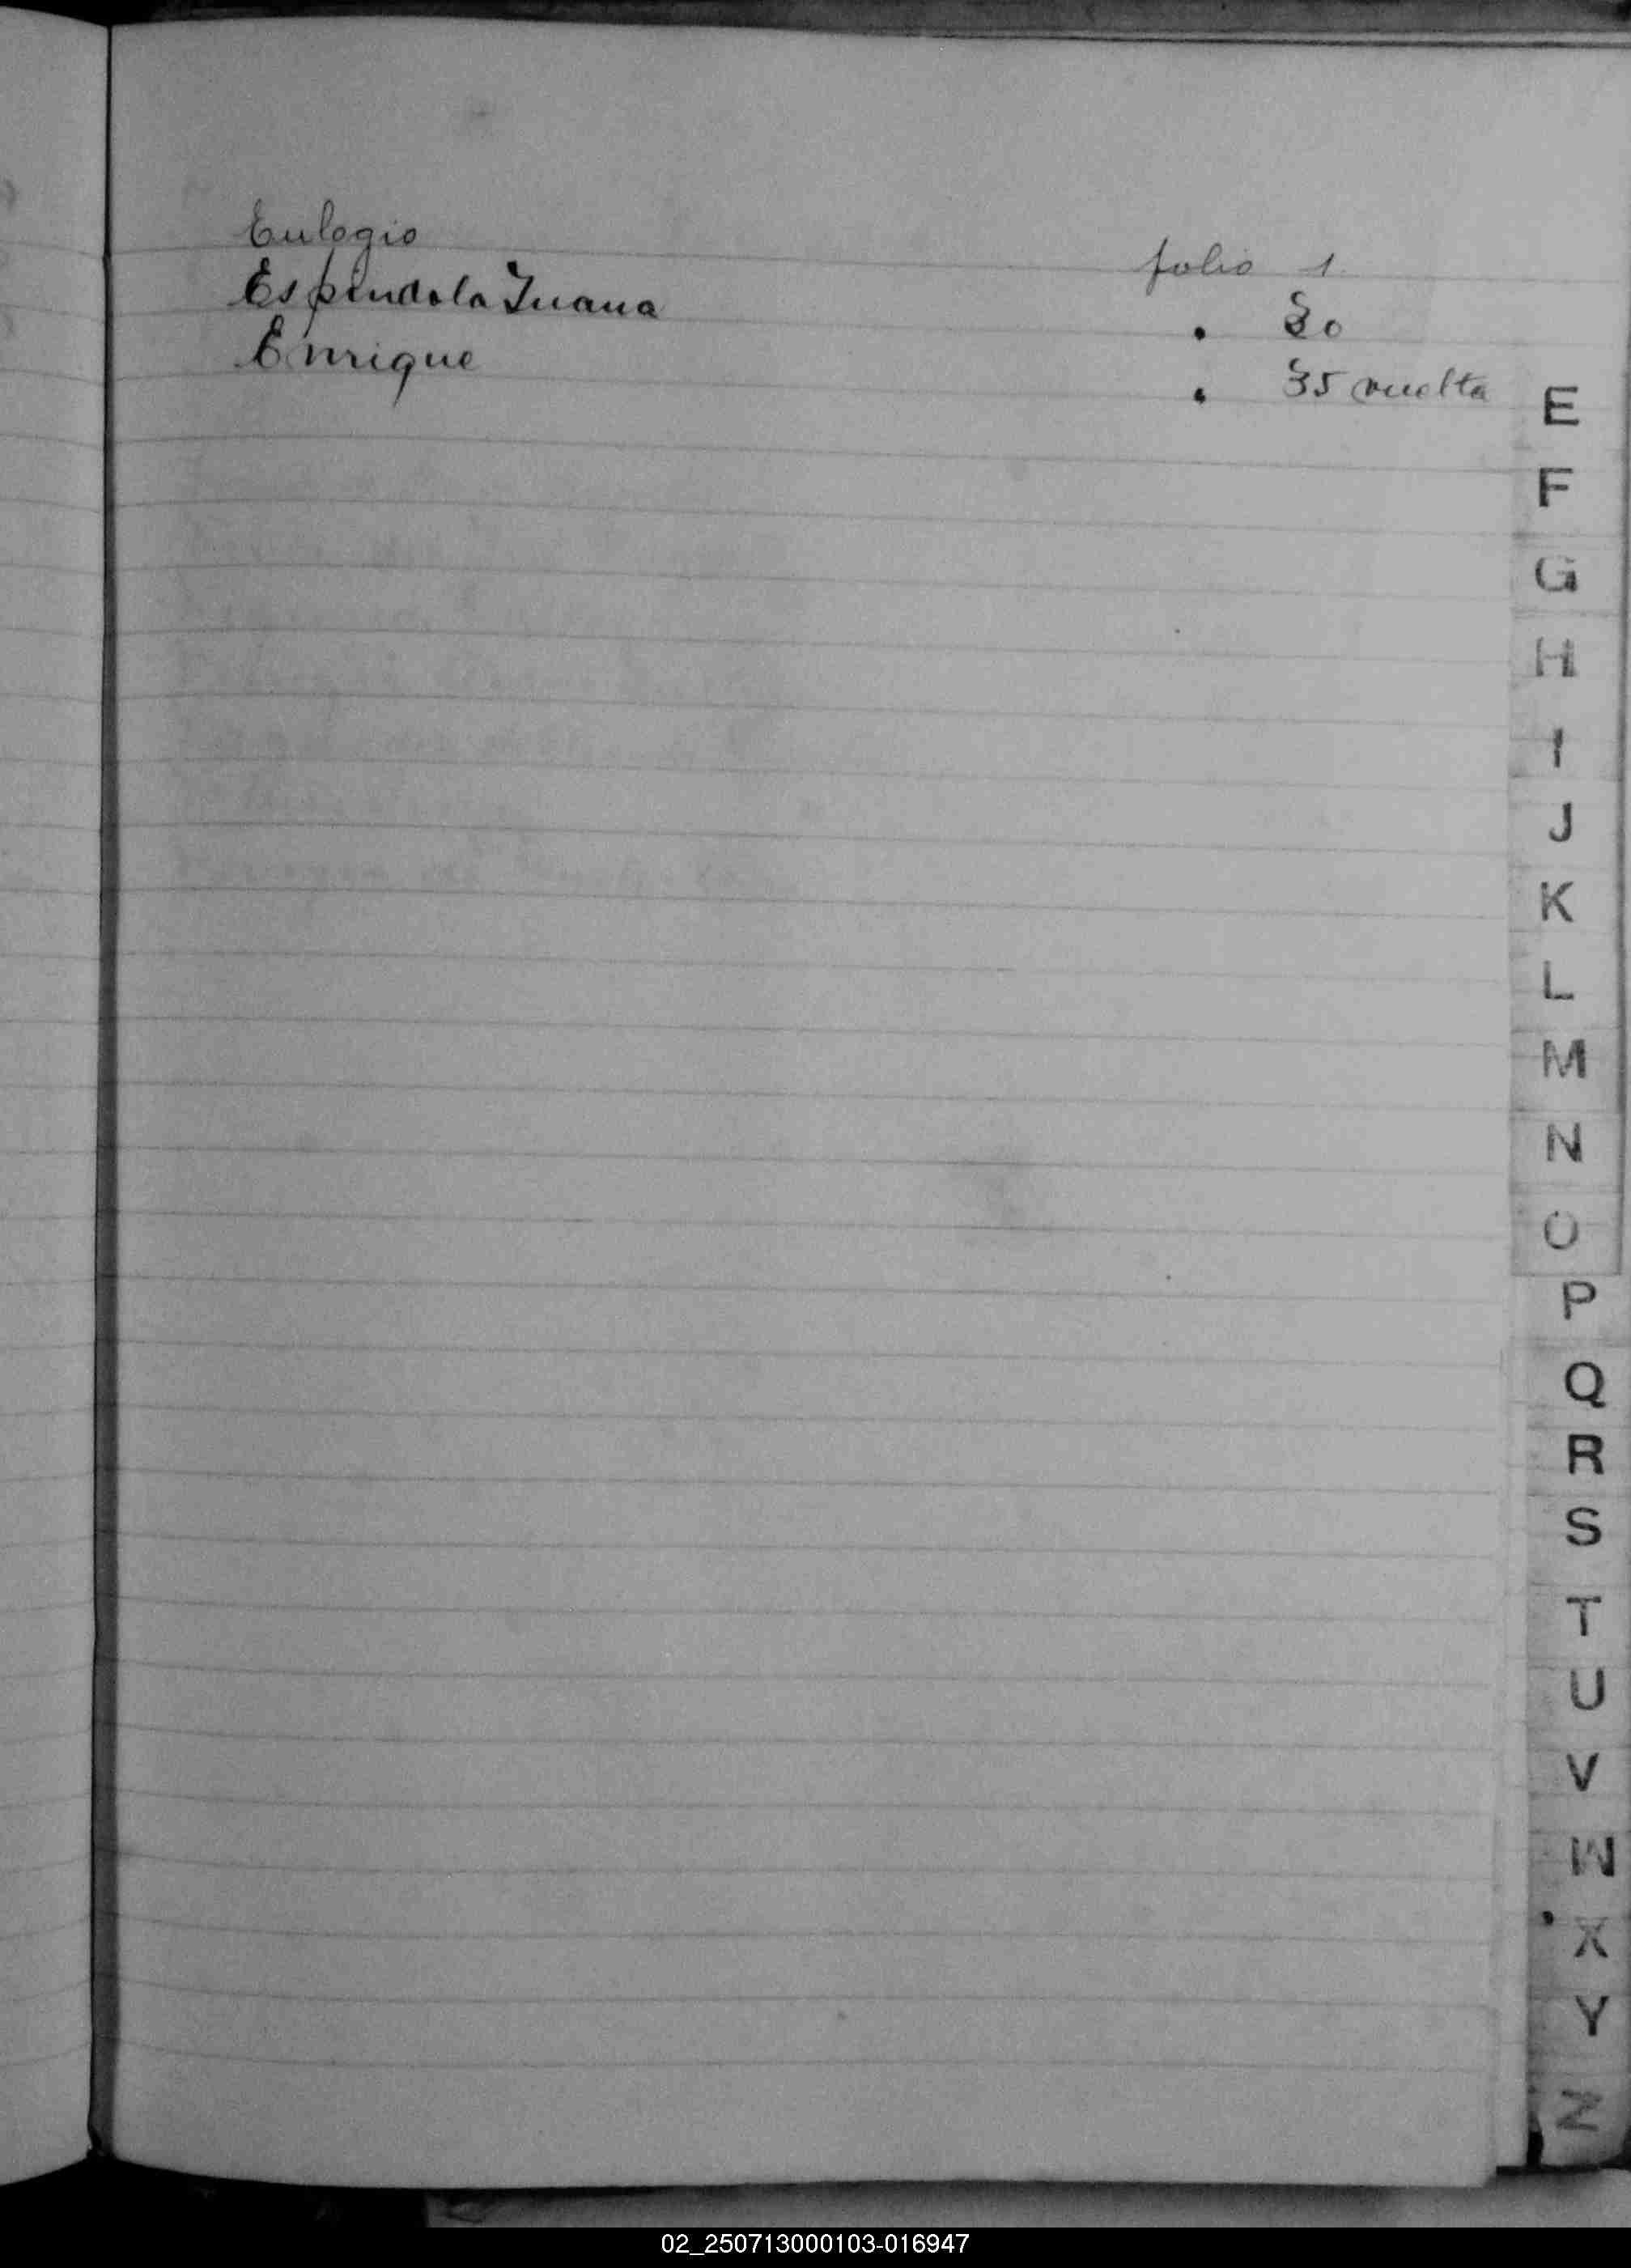 Eulogio folio 1
Espindola Juana . 30
Enrique . 35 vuelta
E
F
G
H
I
J
K
L
M
N
O
P
Q
R
S
T
U
V
W
X
Y
Z
02_250713000103-016947